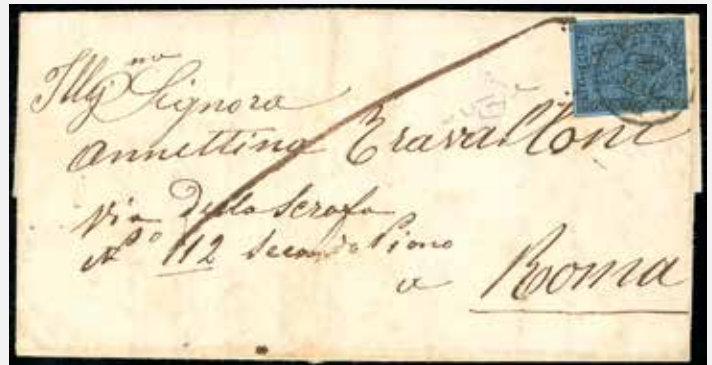 Illỹ ma Signora
Annettina Travalloni
Via della Scrofa
N.º 112 Secondo Piano
a Roma